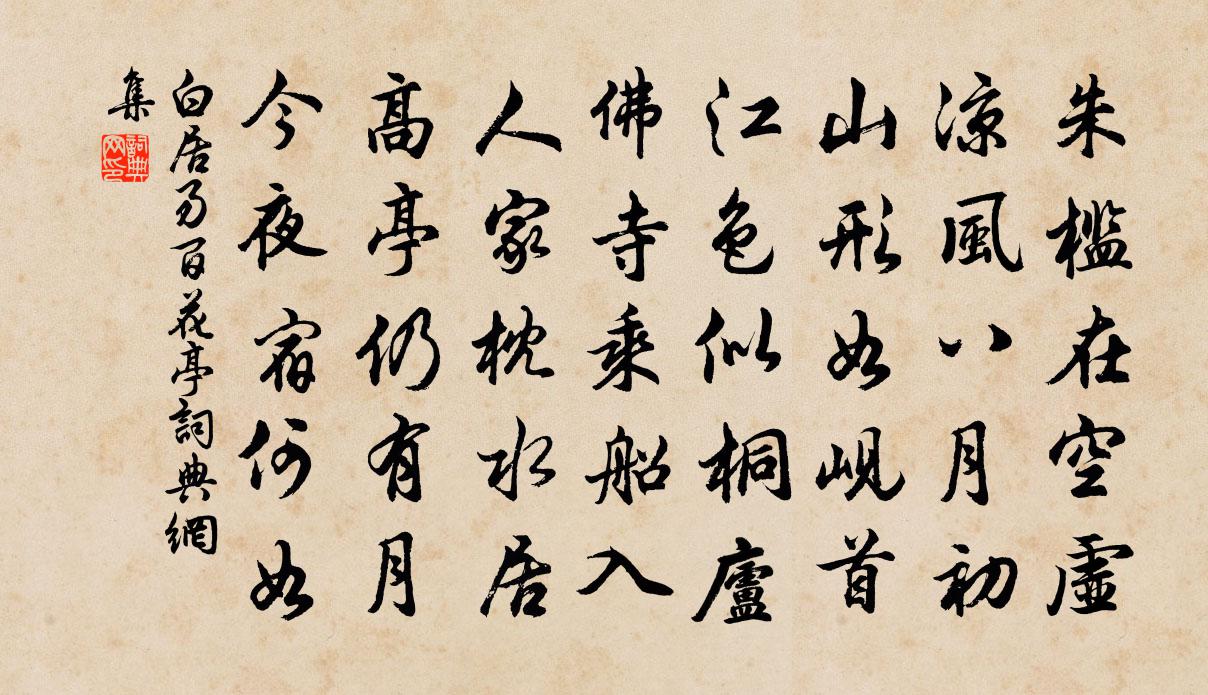 朱檻在空虛
涼風八月初
山形如峴首
江色似桐廬
佛寺乘船入
人家枕水居
高亭仍有月
今夜宿何如
白居易百花亭詞典網
集
詞典
网印